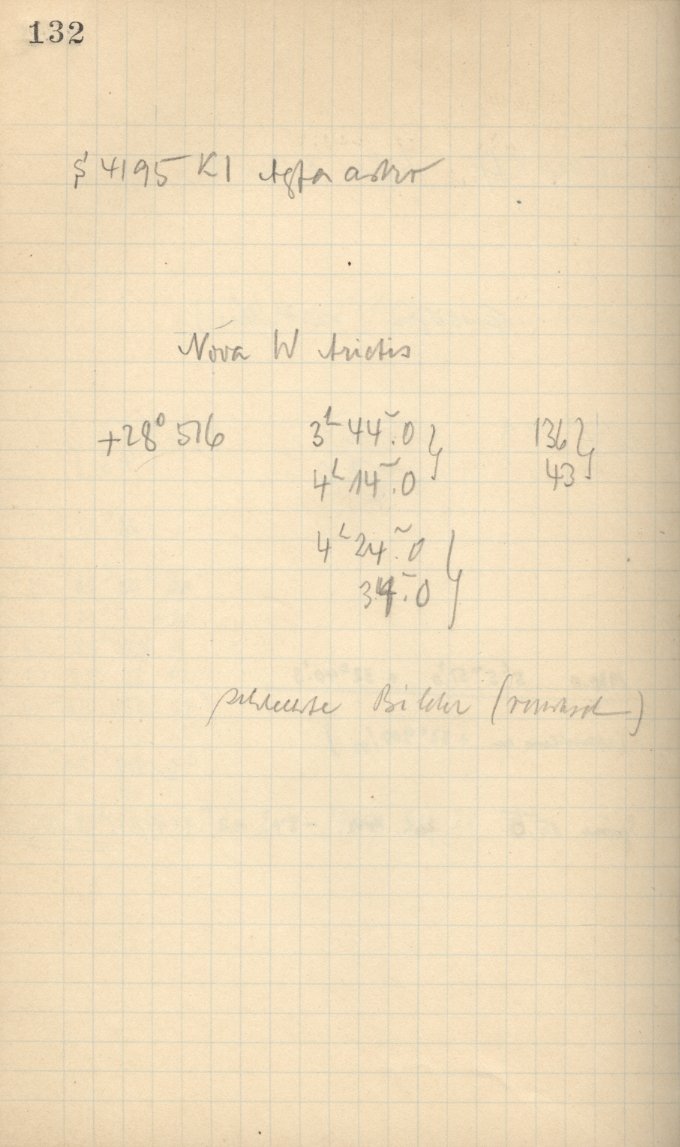 132
S 4195 Kl Agfa astro
Nova W Arietis
+28° 516 3ʰ 44ᵐ.0 } 136 }
4ʰ 14ᵐ.0 43
4ʰ 24ᵐ.0 }
34ᵐ.0
schlechte Bilder